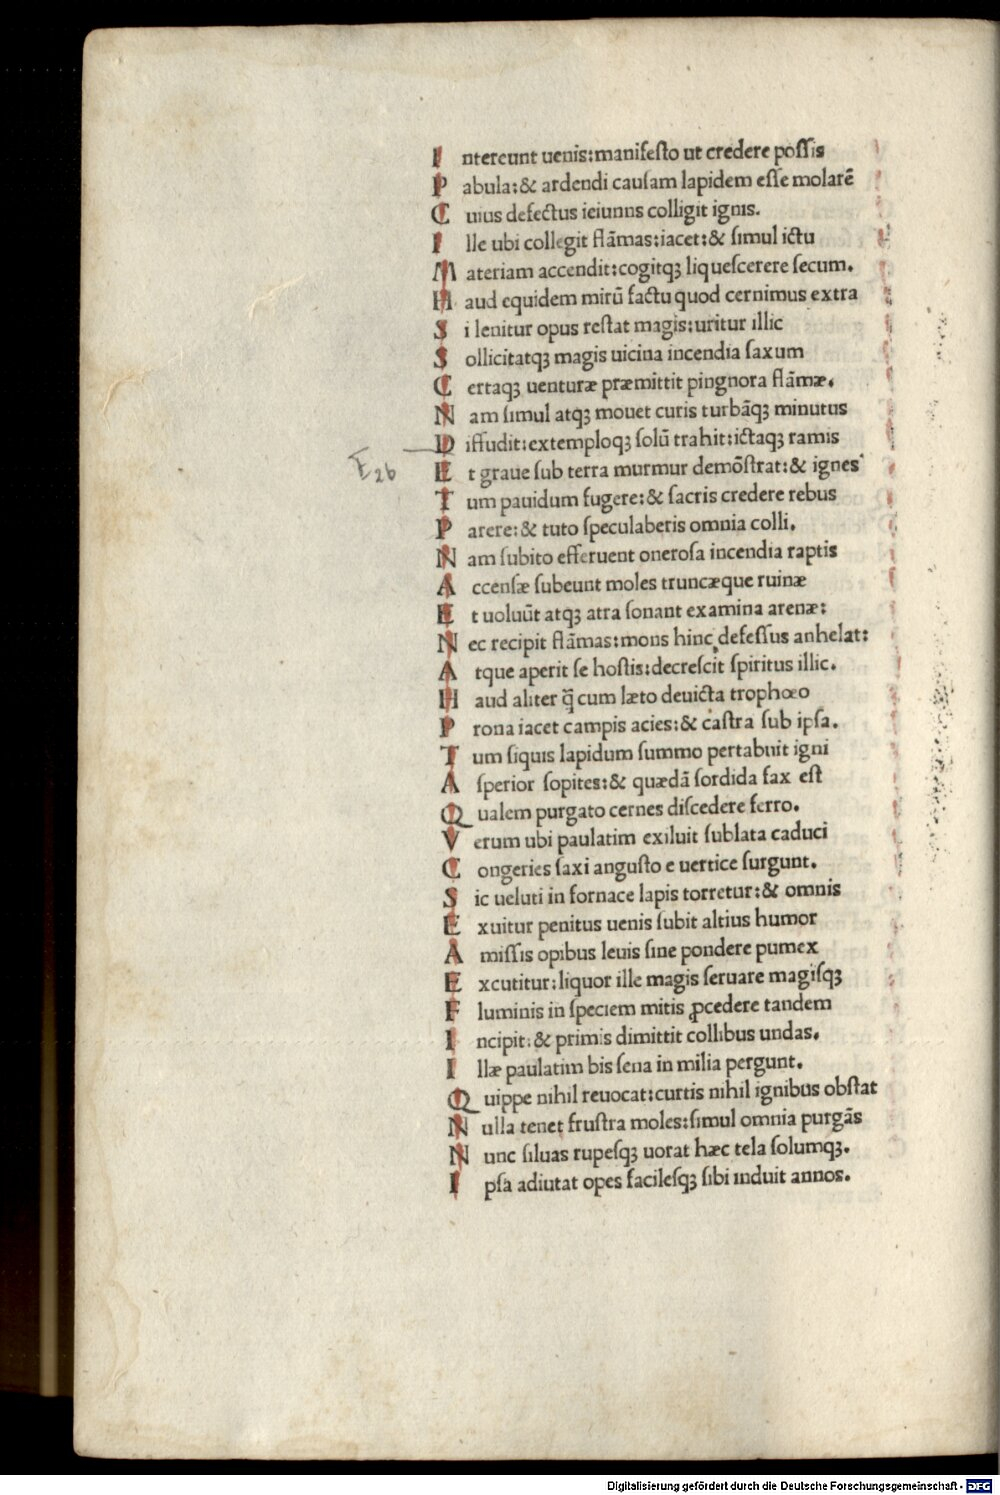 I ntereunt uenis:manifesto ut credere possis
P abula:& ardendi causam lapidem esse molarē
C uius defectus ieiunns colligit ignis.
I lle ubi collegit flāmas:iacet:& simul ictu
M ateriam accendit:cogitqȝ liquescerere secum.
H aud equidem mirū factu quod cernimus extra
S i lenitur opus restat magis:uritur illic
S ollicitatqȝ magis uicina incendia saxum
C ertaqȝ uenturæ præmittit pingnora flāmæ.
N am simul atqȝ mouet curis turbāqȝ minutus
D iffudit:extemploqȝ solū trahit:ictaqȝ ramis
E t graue sub terra murmur demōstrat:& ignes
E26
T um pauidum fugere:& sacris credere rebus
P arere:& tuto speculaberis omnia colli.
N am subito efferuent onerosa incendia raptis
A ccensæ subeunt moles truncæque ruinæ
E t uoluūt atqȝ atra sonant examina arenæ:
N ec recipit flāmas:mons hinc defessus anhelat:
A tque aperit se hostis:decrescit spiritus illic.
H aud aliter q̄ cum læto deuicta trophœo
P rona iacet campis acies:& castra sub ipsa.
T um siquis lapidum summo pertabuit igni
A sperior sopites:& quædā sordida fax est
Q ualem purgato cernes discedere ferro.
V erum ubi paulatim exiluit sublata caduci
C ongeries saxi angusto e uertice surgunt.
S ic ueluti in fornace lapis torretur:& omnis
E xuitur penitus uenis subit altius humor
A missis opibus leuis sine pondere pumex
E xcutitur:liquor ille magis seruare magisqȝ
F luminis in speciem mitis ꝓcedere tandem
I ncipit:& primis dimittit collibus undas.
I llæ paulatim bis sena in milia pergunt.
Q uippe nihil reuocat:curtis nihil ignibus obstat
N ulla tenet frustra moles:simul omnia purgās
N unc siluas rupesqȝ uorat hæc tela solumqȝ.
I psa adiutat opes facilesqȝ sibi induit annos.
Digitalisierung gefördert durch die Deutsche Forschungsgemeinschaft - DFG